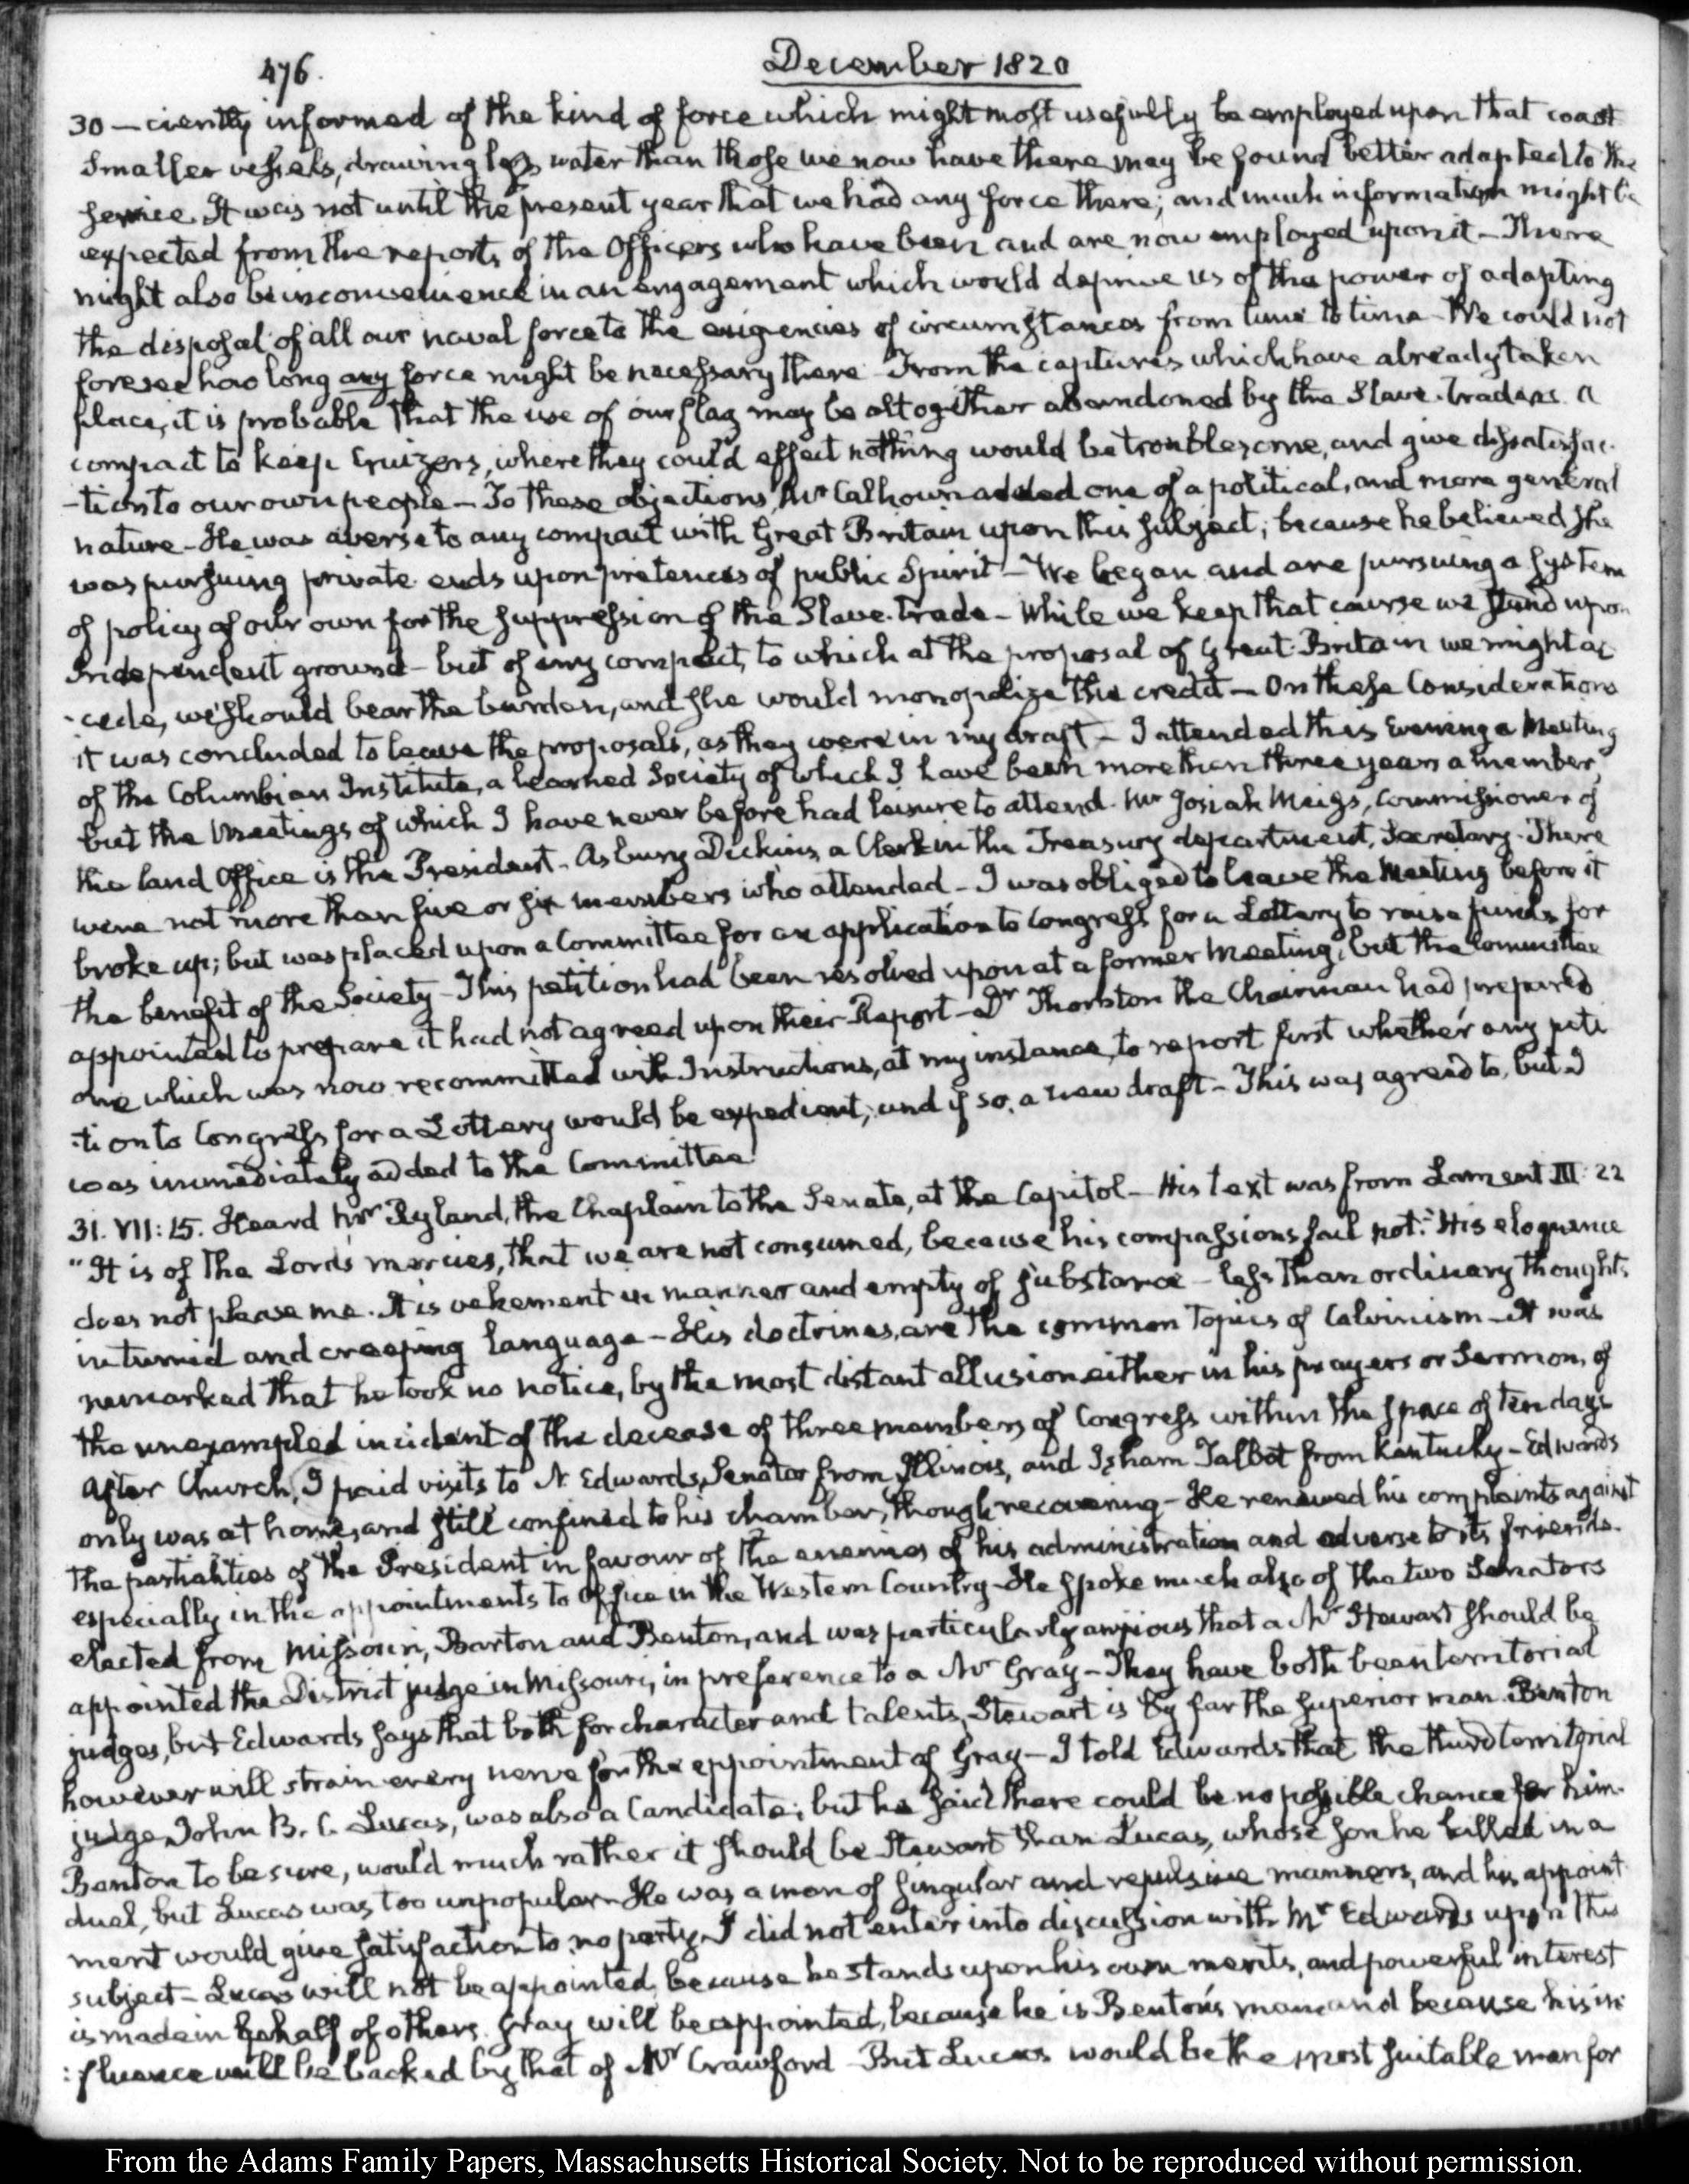 476.
December 1820
30 — ciently informed of the kind of force which might most usefully be employed upon that coast
Smaller vessels, drawing less water than those we now have there may be found better adapted to the
service. It was not until the present year that we had any force there; and much information might be
expected from the reports of the Officers who have been and are now employed upon it — There
might also be inconvenience in an engagement which would deprive us of the power of adapting
the disposal of all our naval force to the exigencies of circumstances from time to time — We could not
foresee how long any force might be necessary there — From the captures which have already taken
place, it is probable that the use of our flag may be altogether abandoned by the Slave-traders. A
compact to keep Cruizers, where they could effect nothing would be troublesome, and give dissatisfac-
-tion to our own people — To these objections Mr Calhoun added one of a political, and more general
nature — He was averse to any compact with Great Britain upon this subject; because he believed she
was pursuing private ends upon pretences of public Spirit — We began and are pursuing a System
of policy of our own for the suppression of the Slave-trade — While we keep that course we stand upon
Independent ground — but of any compact, to which at the proposal of Great-Britain we might ac-
-cede, we should bear the burden, and she would monopolize the credit — On these Considerations
it was concluded to leave the proposals, as they were in my draft — I attended this Evening a Meeting
of the Columbian Institute, a learned Society of which I have been more than three years a member,
but the Meetings of which I have never before had leisure to attend. Mr Josiah Meigs, Commissioner of
the land Office is the President — Asbury Dickins, a Clerk in the Treasury department, Secretary. There
were not more than five or six members who attended — I was obliged to leave the Meeting before it
broke up; but was placed upon a Committee for an application to Congress for a Lottery to raise funds for
the benefit of the Society — This petition had been resolved upon at a former Meeting; but the Committee
appointed to prepare it had not agreed upon their Report — Dr Thornton the Chairman had prepared
one which was now recommitted with Instructions, at my instance, to report first whether any peti
-tion to Congress for a Lottery would be expedient; and if so, a new draft — This was agreed to, but I
was immediately added to the Committee.
31. VII: 15. Heard Mr Ryland, the Chaplain to the Senate, at the Capitol — His text was from Lament III: 22
"It is of the Lord's mercies, that we are not consumed, because his compassions fail not." His eloquence
does not please me. It is vehement in manner and empty of substance — less than ordinary thoughts
in tumid and creeping language — His doctrines, are the common topics of Calvinism — It was
remarked that he took no notice, by the most distant allusion either in his prayers or Sermon, of
the unexampled incident of the decease of three members of Congress within the space of ten days
After Church, I paid visits to N. Edwards, Senator from Illinois, and Isham Talbot from Kentucky — Edwards
only was at home, and still confined to his chamber, though recovering — He renewed his complaints against
the partialities of the President in favour of the enemies of his administration and adverse to its friends.
especially in the appointments to Office in the Western Country — He spoke much also of the two Senators
elected from Missouri, Barton and Benton, and was particularly anxious that a Mr Stewart should be
appointed the District judge in Missouri, in preference to a Mr Gray — They have both been territorial
judges, but Edwards says that both for character and talents, Stewart is by far the superior man. Benton
however will strain every nerve for the appointment of Gray — I told Edwards that the third territorial
judge, John B. C. Lucas, was also a Candidate; but he said there could be no possible chance for him.
Benton to be sure, would much rather it should be Stewart than Lucas, whose son he killed in a
duel, but Lucas was too unpopular — He was a man of singular and repulsive manners, and his appoint
ment would give satisfaction to no party. I did not enter into discussion with Mr Edwards upon this
subject — Lucas will not be appointed, because he stands upon his own merits, and powerful interest
is made in behalf of others. Gray will be appointed, because he is Benton's man and because his in-
:fluence will be backed by that of Mr Crawford — But Lucas would be the most suitable man for
From the Adams Family Papers, Massachusetts Historical Society. Not to be reproduced without permission.